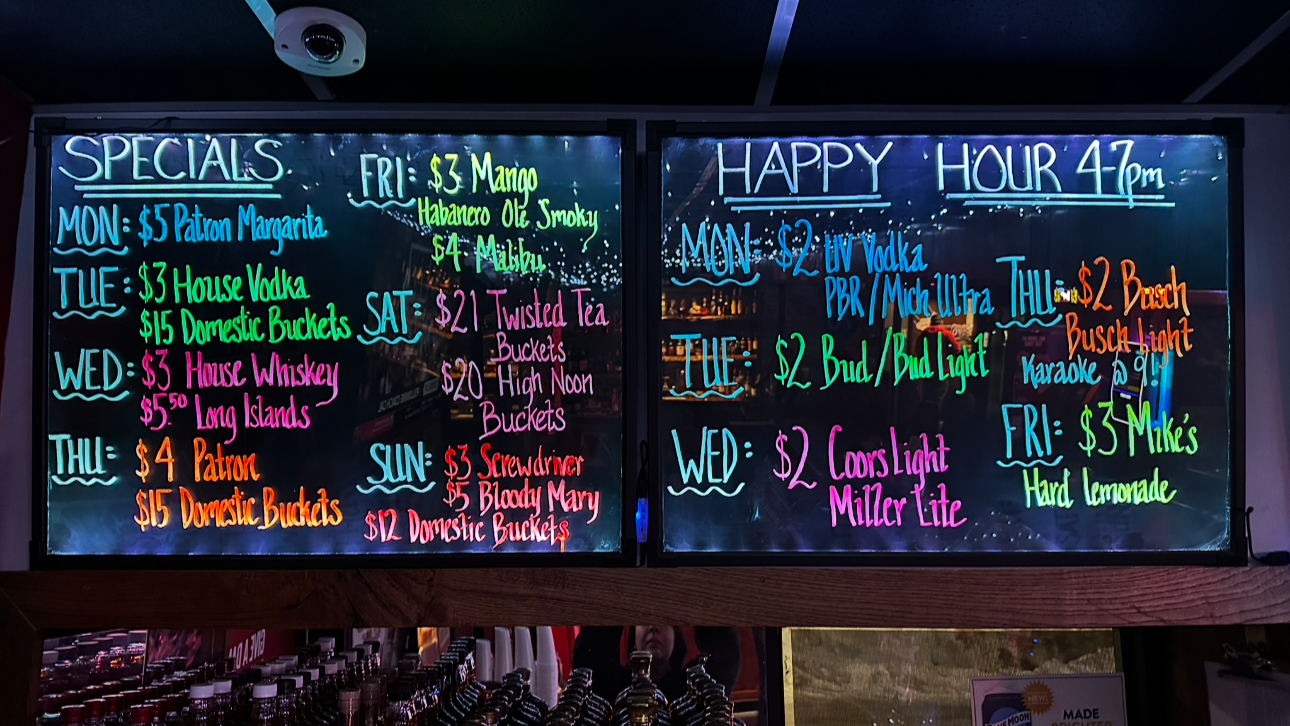 SPECIALS
MON: $5 Patron Margarita
TUE: $3 House Vodka
$15 Domestic Buckets
WED: $3 House Whiskey
$5.50 Long Islands
THU: $4 Patron
$15 Domestic Buckets
FRI: $3 Mango
Habanero Ole Smoky
$4 Malibu
SAT: $21 Twisted Tea
Buckets
$20 High Noon
Buckets
SUN: $3 Screwdriver
$5 Bloody Mary
$12 Domestic Buckets
HAPPY HOUR 4-7pm
MON: $2 UV Vodka
PBR/Mich Ultra
TUE: $2 Bud/Bud Light
WED: $2 Coors Light
Miller Lite
THU: $2 Busch
Busch Light
Karaoke @ 9!
FRI: $3 Mike's
Hard Lemonade
MOON
MADE
BRIGHTER